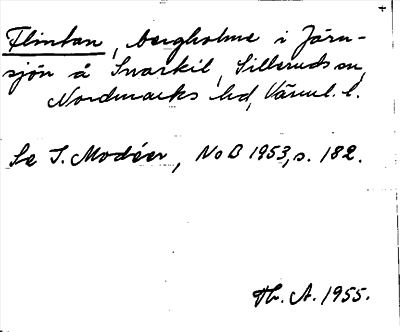 Flintan, bergholme i Järn-
sjön å Svarkil, Silleruds sn,
Nordmarks hd, Värml. l.
Se I. Modéer, NoB 1953, s. 182.
Th. A. 1955.